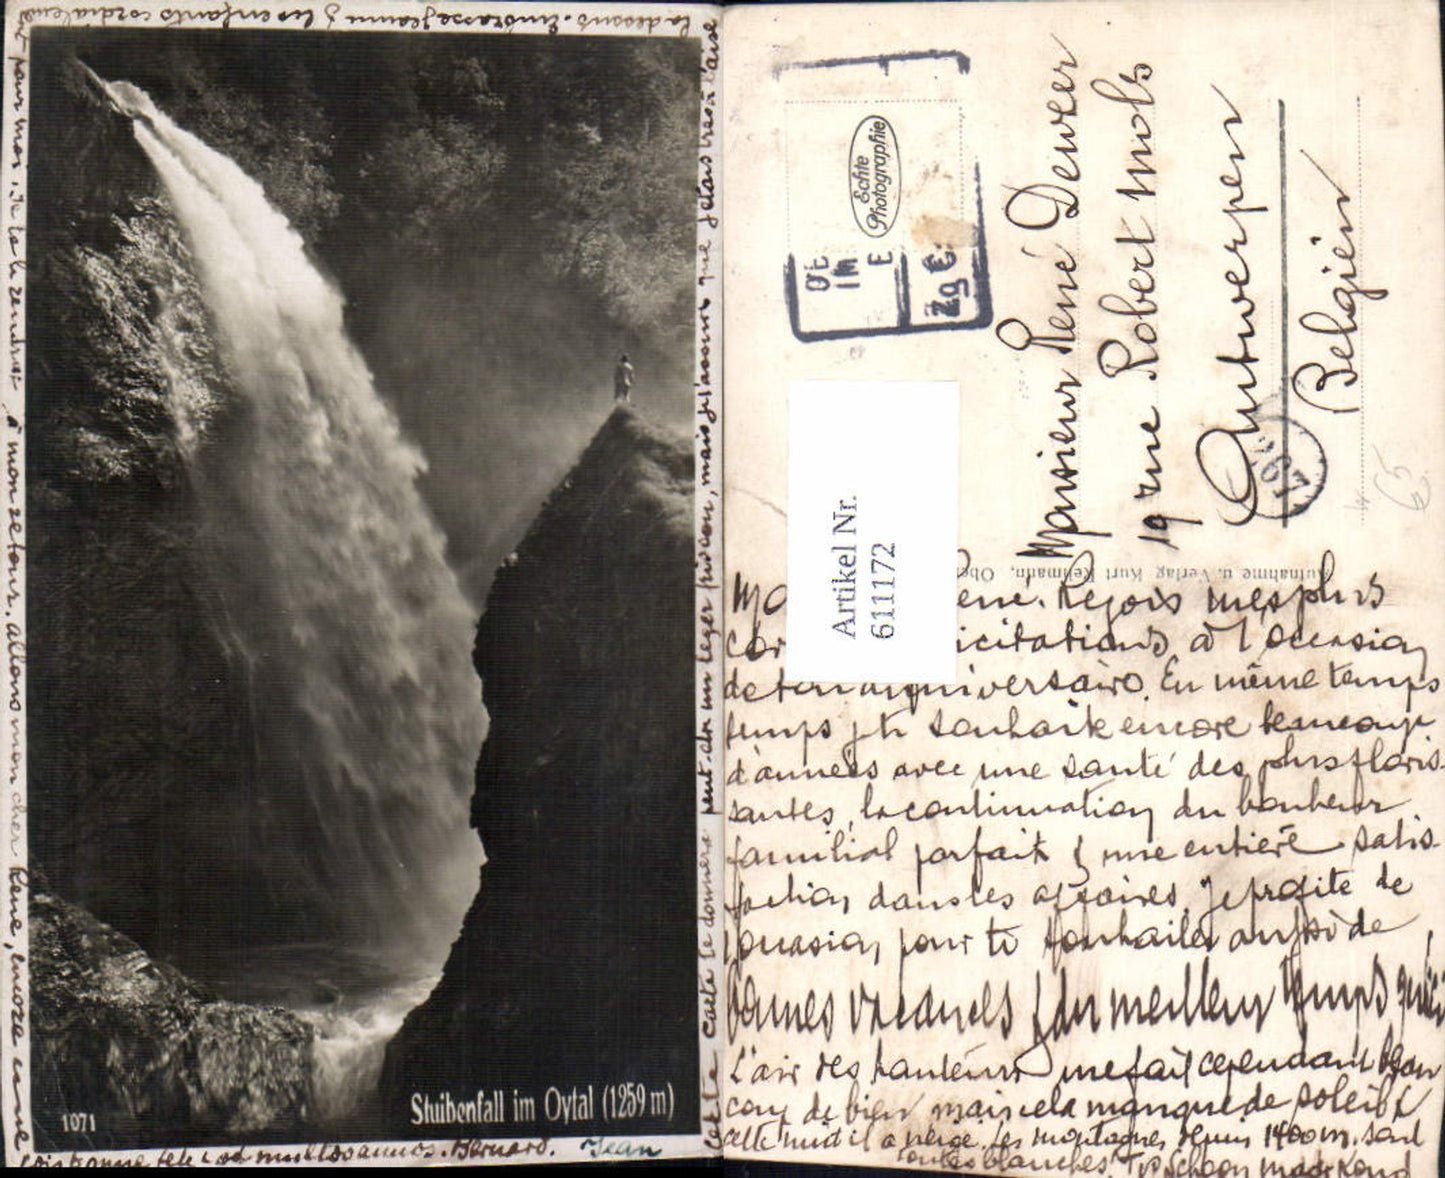 Stuibenfall im Oytal (1259 m)
1071
là dessus. Embrasse Jeanne & les enfants cordialement
pour moi. Je te le rendrai à mon retour. Allons mon cher René, encore une
fois bonne fête & ad multos annos. Bernard. Jean
Cette carte te donnera peut-être un léger frisson, mais je t'assure que j'étais très à l'aise
Echte
Photographie
zg E.
Monsieur René Dewer
19 rue Robert Mols
Antwerpen
Belgien
Artikel Nr.
611172
Aufnahme u. Verlag Kurt Rehmann, Obe
65
René. Reçois mes plus
icitations à l'occasion
de ton anniversaire. En même temps
temps je te souhaite encore beaucoup
d'années avec une santé des plus floris-
santes, la continuation du bonheur
familial parfait & une entière satis-
faction dans les affaires. Je profite de
l'occasion pour te souhaiter aussi de
bonnes vacances & du meilleur temps
L'air des hauteurs me fait cependant beau
coup de bien mais cela manque de soleil &
cette nuit il a neigé. Les montagnes depuis 1400 m. sont
toutes blanches.